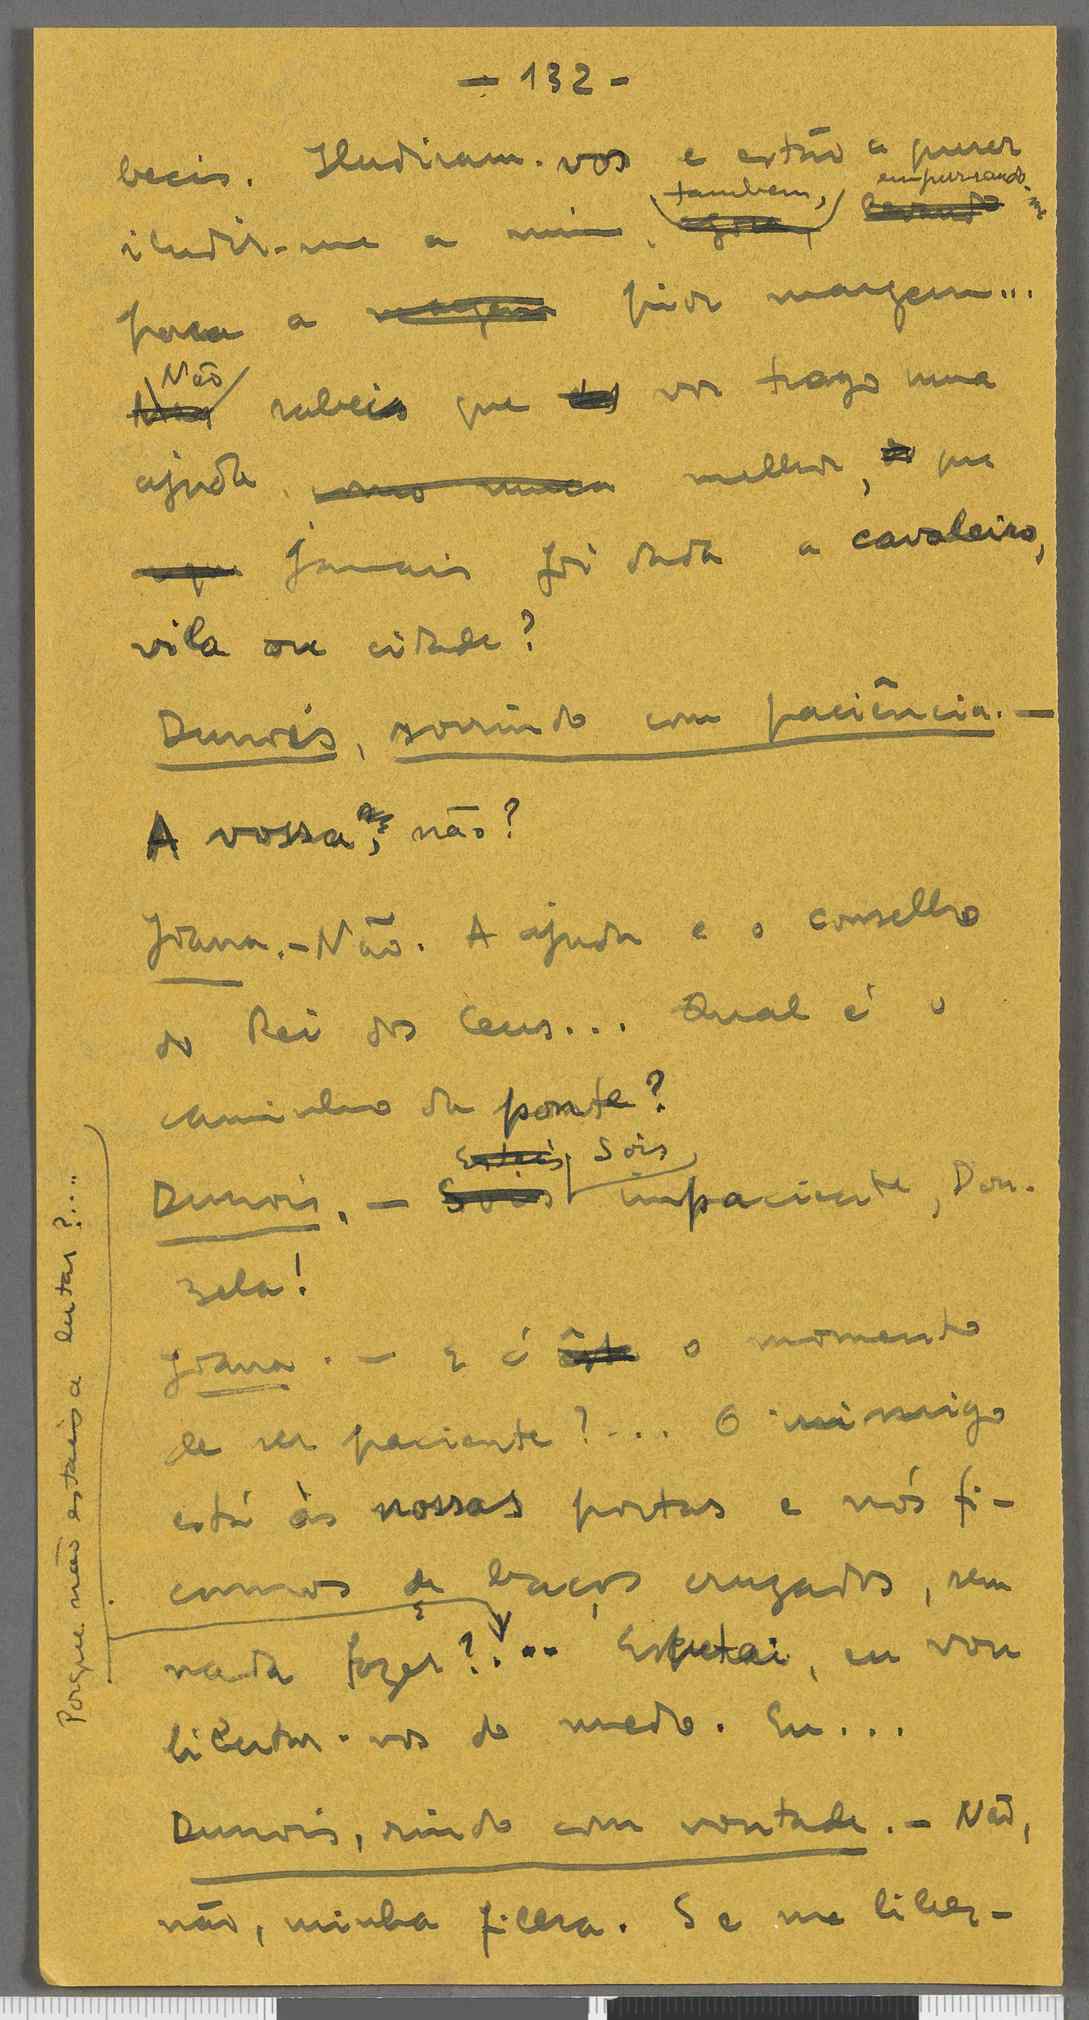 - 132 -
becis. Iludiram-vos e estão a querer
também, empurrando-me
iludir-me a mim, agora, levando
para a margem pior margem...
Não
sabeis que vos trago uma
ajuda como nunca melhor, que
jamais foi dada a cavaleiro,
vila ou cidade?
Dunois, sorrindo com paciência. -
A vossa, não?
Joana. - Não. A ajuda e o conselho
do Rei dos Ceus... Qual é o
caminho da ponte?
Estais Sois
Dunois. - Sois impaciente, Don-
zela!
Joana. - E é êste o momento
de ser paciente?... O inimigo
está às nossas portas e nós fi-
camos de braços cruzados, sem
nada fazer?... Escutai, eu vou
libertar-vos do medo. Eu...
Dunois, rindo com vontade. - Não,
não, minha filha. Se me liber-
Porque não estais a lutar?...